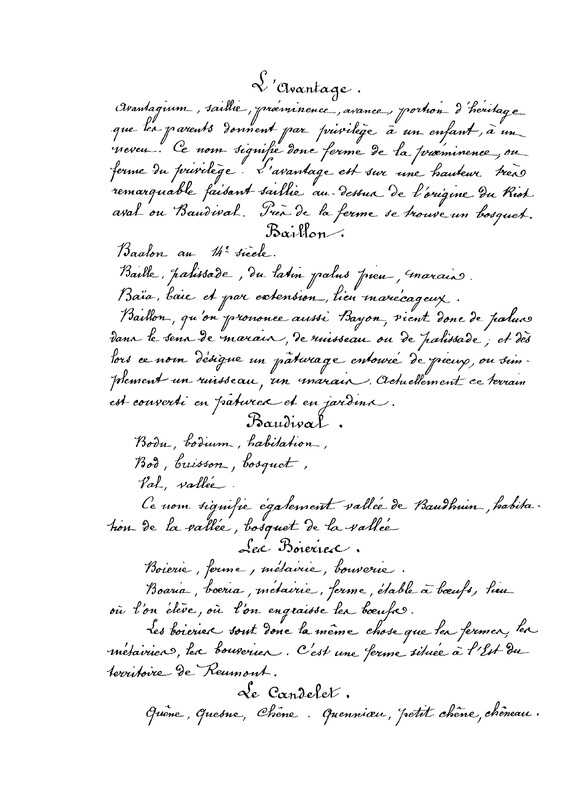 L'Avantage.
Avantagium, saillie, præminence, avance, portion d'héritage
que les parents donnent par privilège à un enfant, à un
neveu. Ce nom signifie donc ferme de la præminence, ou
ferme du privilège. L'avantage est sur une hauteur très
remarquable faisant saillie au-dessus de l'origine du Riot
aval ou Baudival. Près de la ferme se trouve un bosquet.
Baillon.
Baalon au 14e siècle.
Baille, palissade, du latin palus pieu, marais.
Baïa, baie et par extension, lieu marécageux.
Baillon, qu'on prononce aussi Bayon, vient donc de palus
dans le sens de marais, de ruisseau ou de palissade; et dès
lors ce nom désigne un pâturage entouré de pieux, ou sim-
plement un ruisseau, un marais. Actuellement ce terrain
est couverti en pâtures et en jardins.
Baudival.
Bodu, bodium, habitation,
Bod, buisson, bosquet,
Val, vallée.
Ce nom signifie également vallée de Baudhuin, habita-
tion de la vallée, bosquet de la vallée
Les Boieries.
Boierie, ferme, métairie, bouverie.
Boaria, boeria, métairie, ferme, étable à bœufs, lieu
où l'on élève, où l'on engraisse les bœufs.
Les boieries sont donc la même chose que les fermes, les
métairies, les bouveries. C'est une ferme située à l'Est du
territoire de Reumont.
Le Candelet.
Quêne, Quesne, Chêne. Quenniau, petit chêne, chêneau.